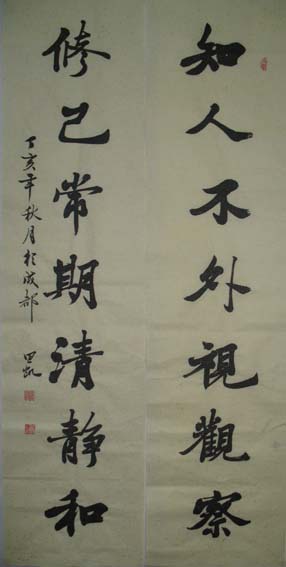 知人不外視觀察
修己常期清静和
丁亥年秋月於成都